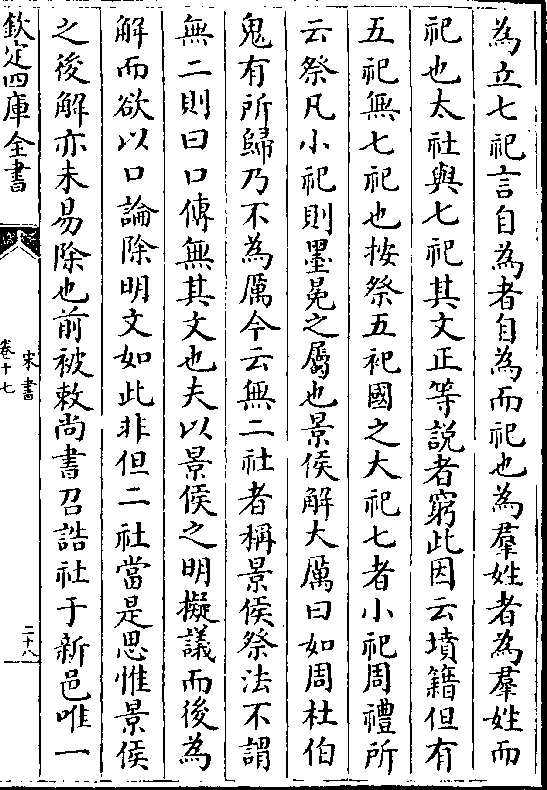 為立七祀言自為者自為而祀也為羣姓者為羣姓而
祀也太社與七祀其文正等説者窮此因云墳籍但有
五祀無七祀也按祭五祀國之大祀七者小祀周禮所
云祭凡小祀則墨冕之屬也景侯解大厲曰如周杜伯
鬼有所歸乃不為厲今云無二社者稱景侯祭法不謂
無二則曰口傳無其文也夫以景侯之明擬議而後為
解而欲以口論除明文如此非但二社當是思惟景侯
之後解亦未易除也前被敕尚書召誥社于新邑唯一
欽定四庫全書
宋書
卷十七
二十八